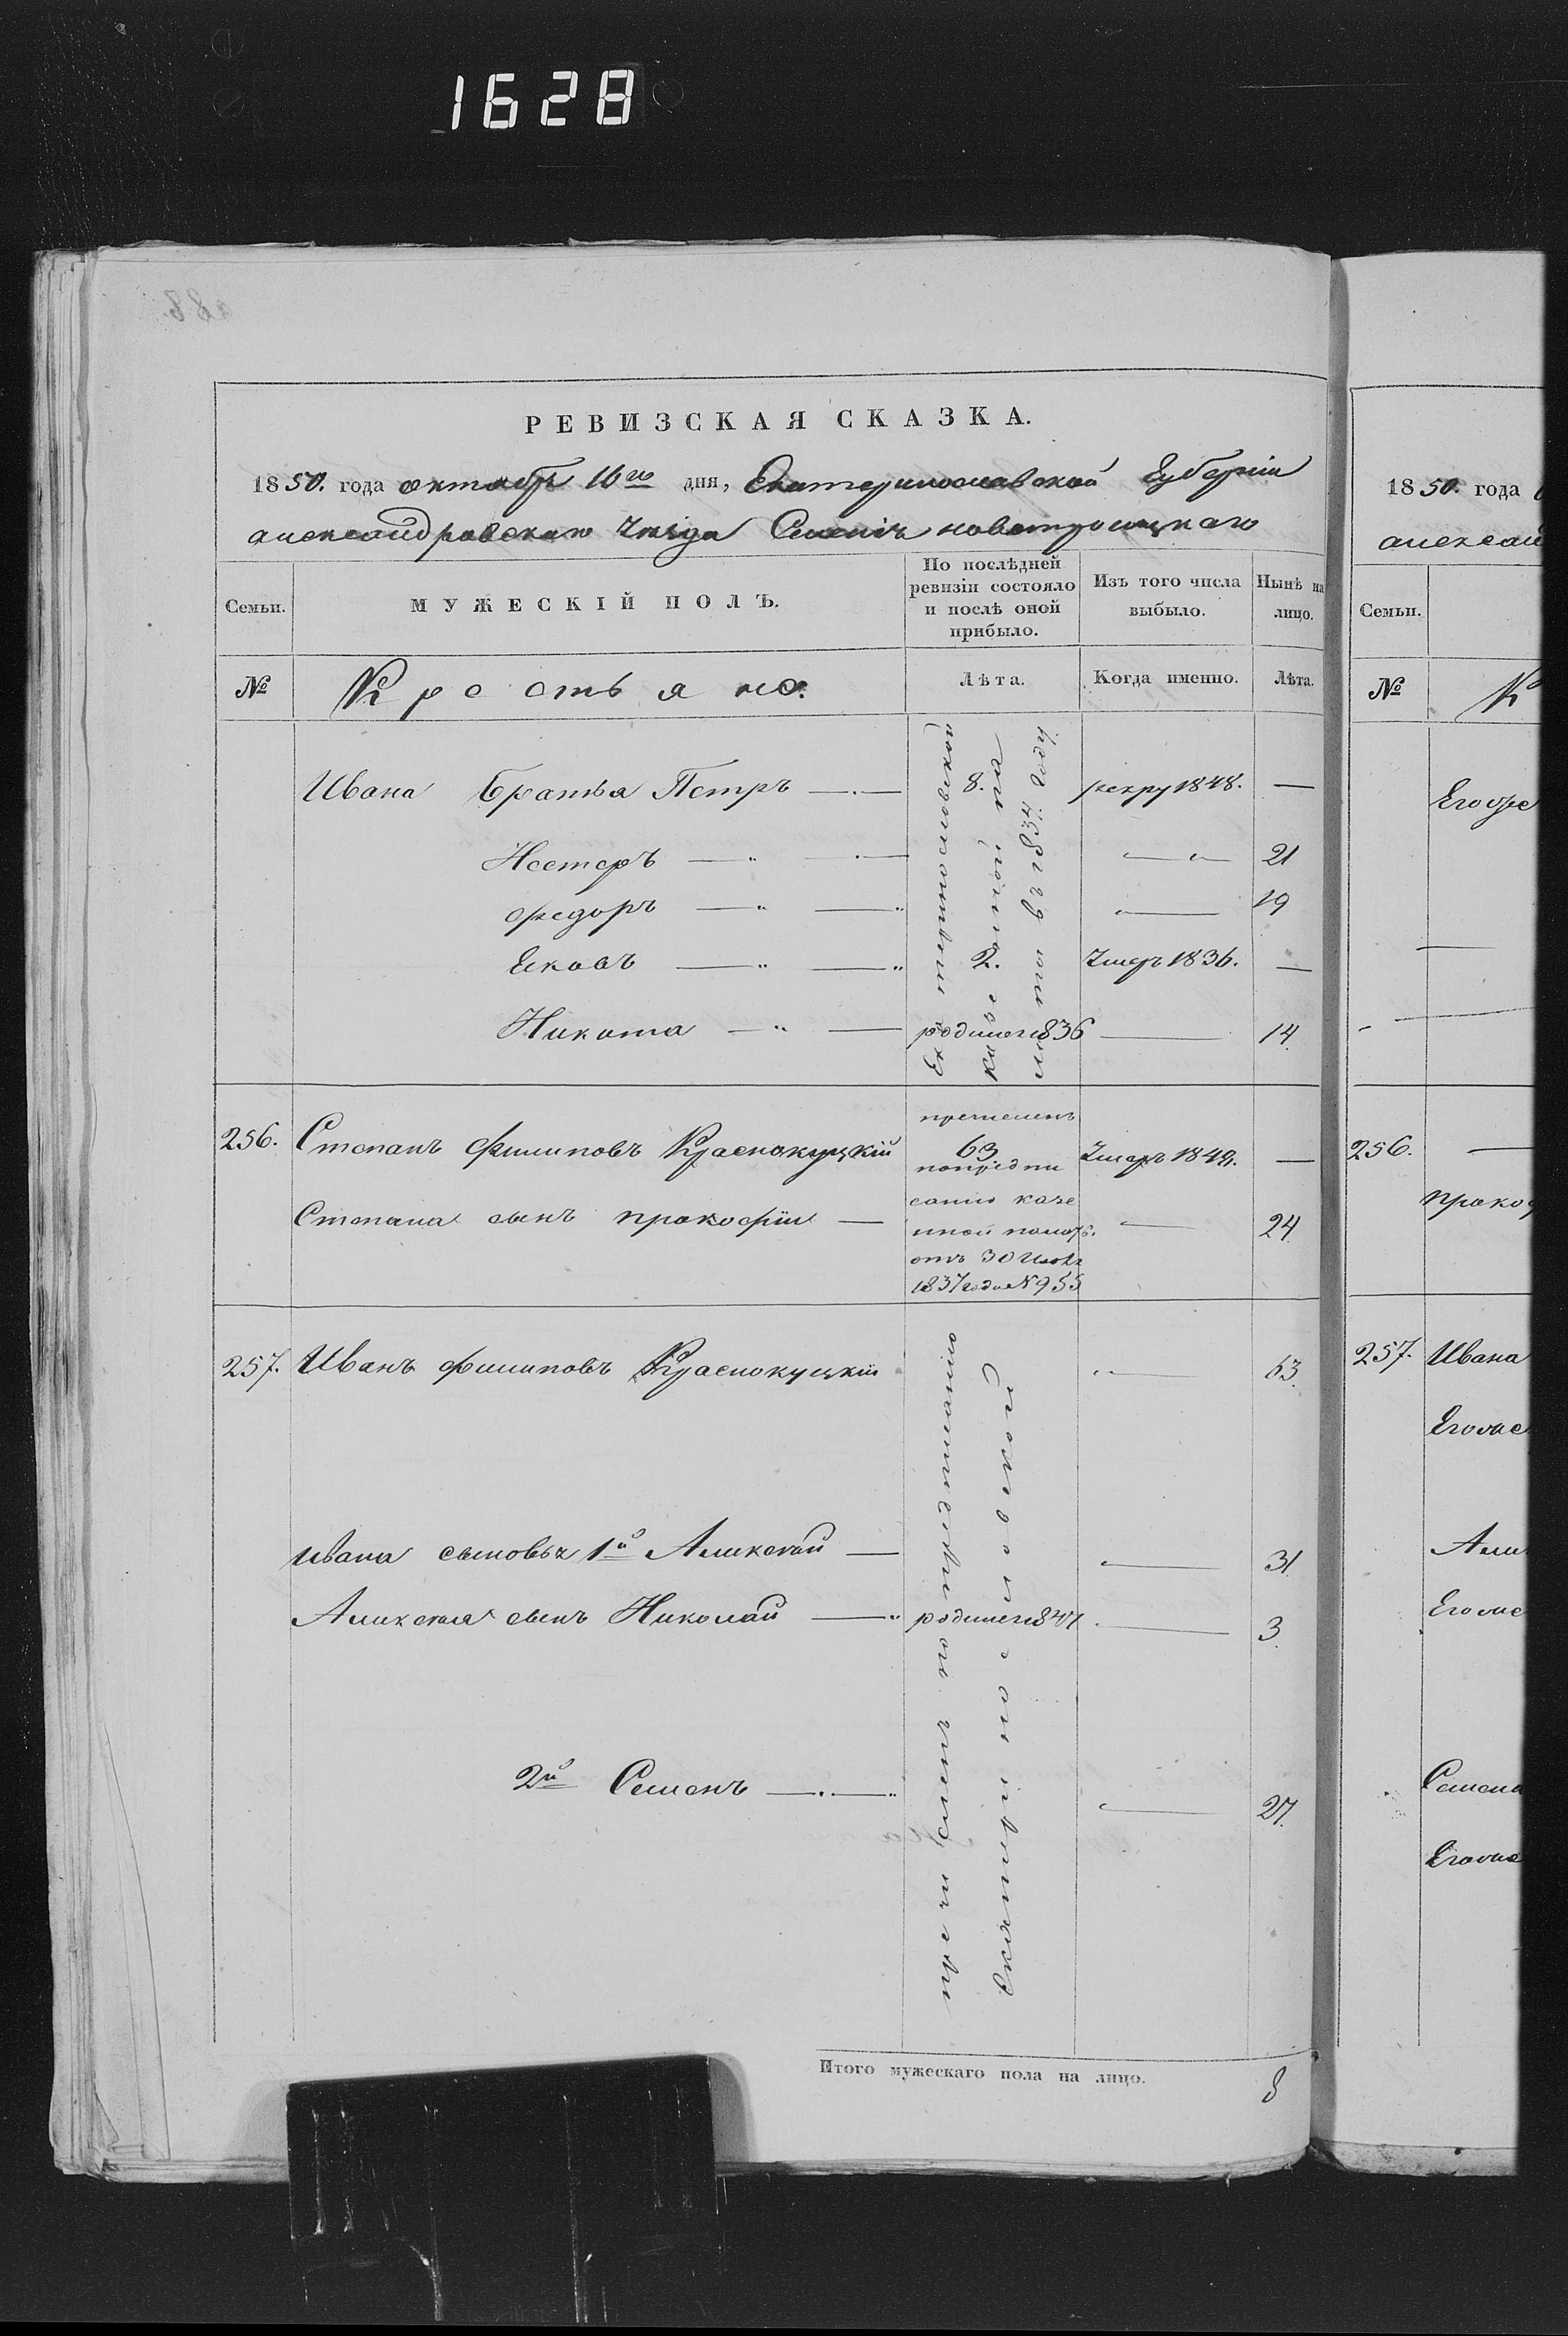 1628
РЕВИЗСКАЯ СКАЗКА.
1850. года октября 16го дня, Екатеринославской Губерніи
александровскаго Уезда Селенія новотроицкаго
Семьи.
МУЖЕСКІЙ ПОЛЪ.
По послѣдней ревизіи состояло и послѣ оной прибыло.
Изъ того числа выбыло.
Нынѣ на лицо.
№
Крестьяне.
Лѣта.
Когда именно.
Лѣта.
Ивана братья Петръ 8. рекру 1848. —
Нестеръ 21
Федоръ 19
Ековъ 2. Умеръ 1836. —
Никита родился 1836 14.
Екатеринославской
казенной па
латы въ 1834 году
256. Степанъ филиповъ Краснокуцкій 63 Умеръ 1849. —
причисленъ
по предпи
санію казе
нной палаты.
отъ 30 Июня
1837 года № 955
Степана сынъ прокофій — 24.
257. Иванъ филиповъ Краснокуцкій 63.
Ивана сыновья 1й Аликсей — 31.
Аликсея сынъ Николай родился 1847 3.
2й Семенъ 27.
причисленъ по предписанію
Екатеринославской
Итого мужескаго пола на лицо. 8
1850. года
алексан
Семьи.
№
К
Его
256.
проко
257. Ивана
Его
Али
Его
Семена
Его